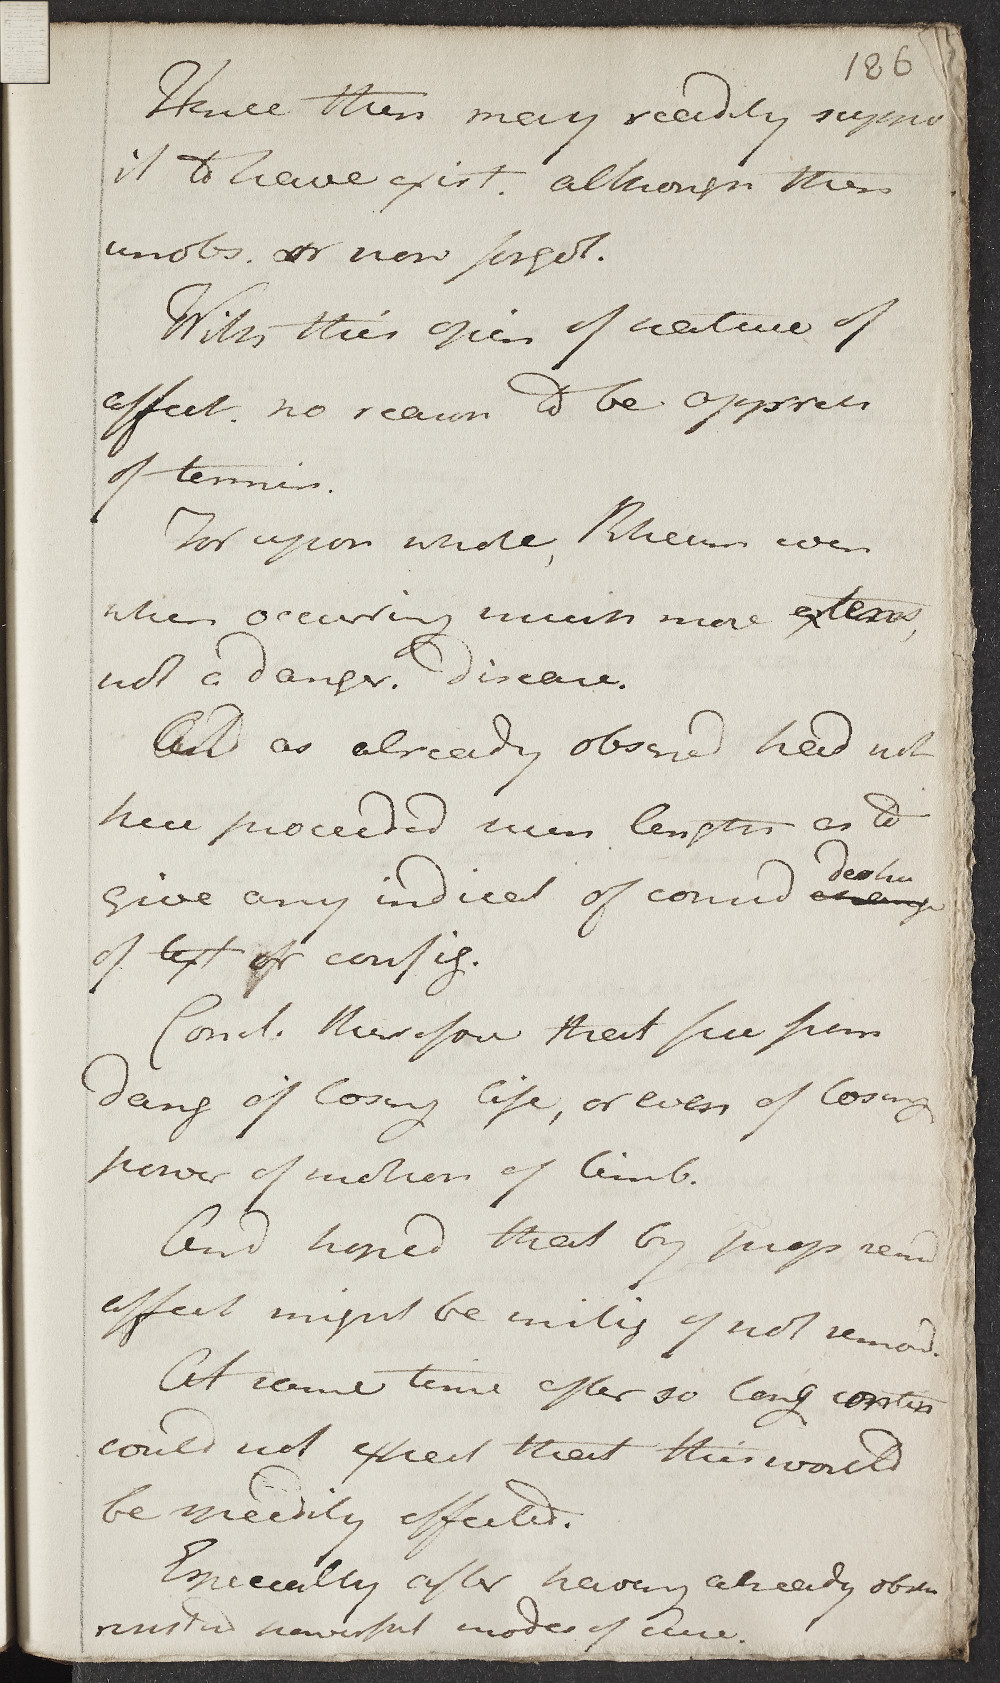 186
Hence then may readily suppo
it to have exist. although then
unobs. or now forgot.
With this opin of nature of
affect. no reason to be appreh
of termin.
For upon whole, Rheum even
when occurring much more extens,
not a danger. disease.
And as already observed had not
here proceeded such length as to
give any indicat of consid
destru
of text or config.
Concl. therefore that free from
dang of losing life, or even of losing
power of motion of limb.
And hoped that by prop remed
affect might be mitig if not remov.
At same time after so long contin
could not expect that this would
be speedily effected.
Especially after having already obsti
resisted powerful modes of cure.